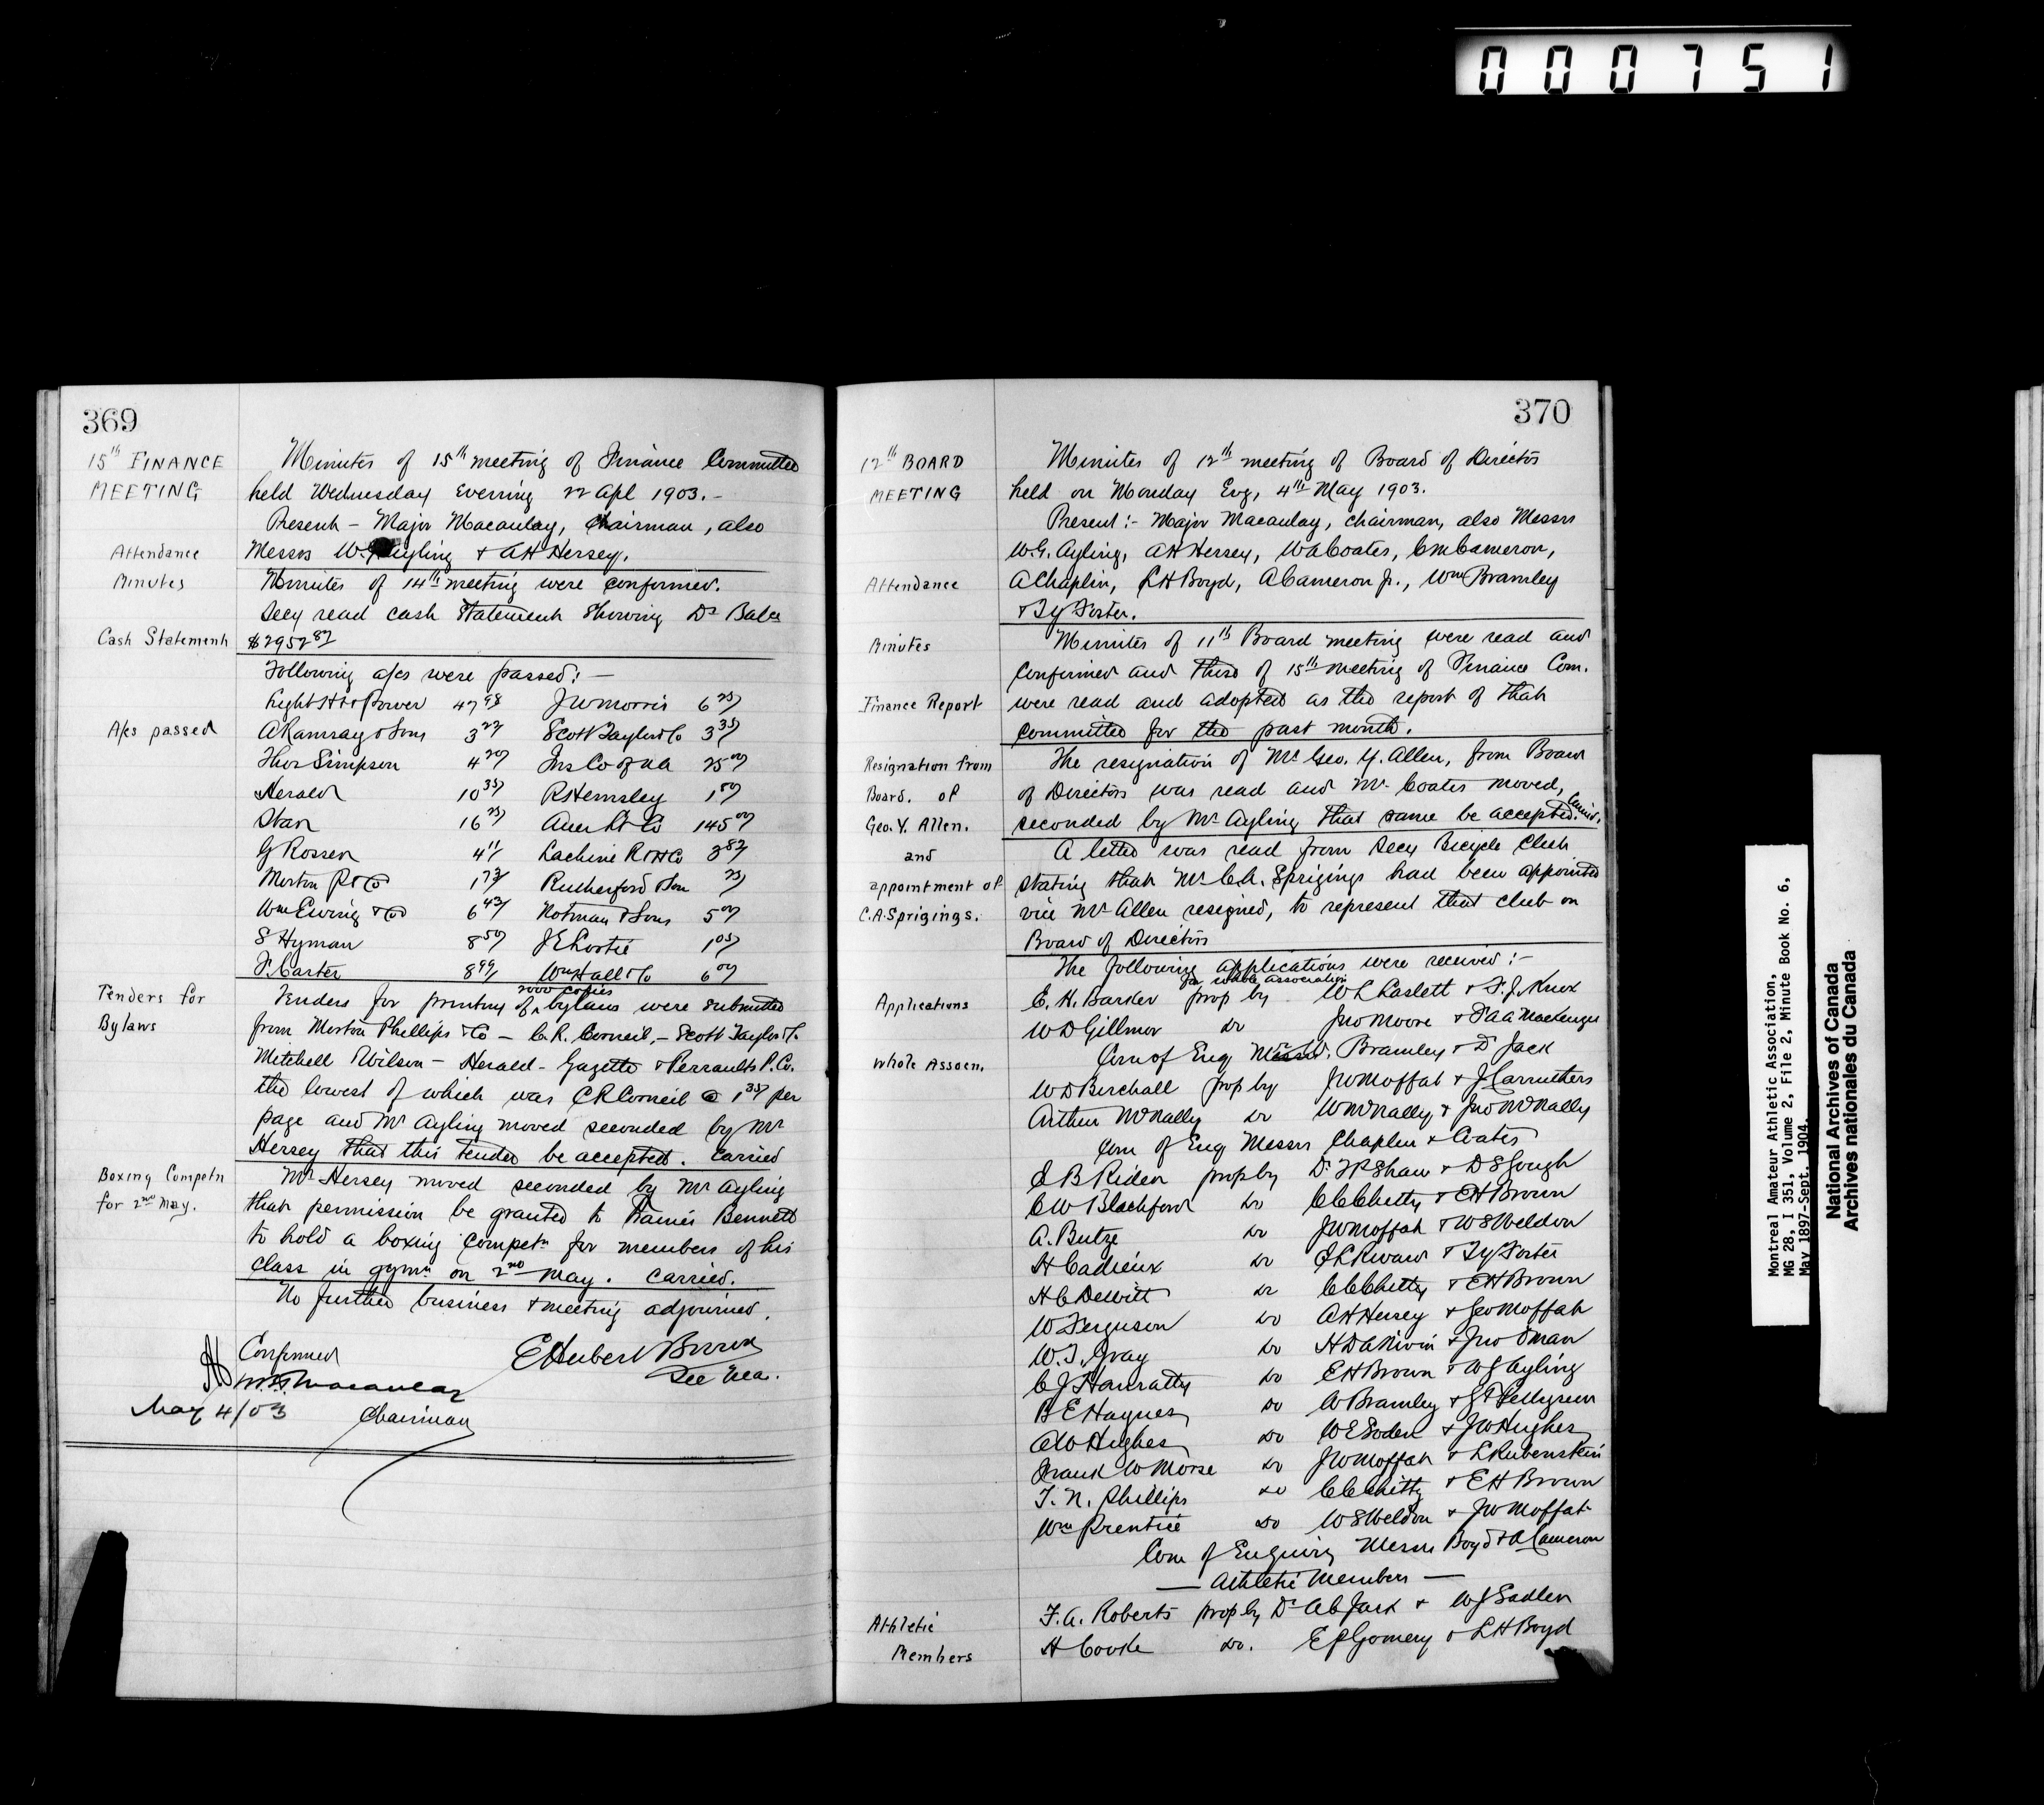 000751
369
15th FINANCE MEETING
Minutes of 15th meeting of Finance Committee
held Wednesday Evening 22 Apl 1903.-
Present - Major Macaulay, Chairman, also
Attendance
Messrs W. Ayling & AH Hersey.
Minutes
Minutes of 14th meeting were confirmed.
Secy read cash statement showing Dr Balce
Cash Statement
$2952 87
Following a/cs were passed:-
Light Ht & Power 47 98 JW Morris 6 25
A/cs passed
A Ramsay & Sons 3 22 Scott Taylor & Co 3 35
Thos Simpson 4 20 Ins Co of NA 25 00
Herald 10 35 R Hemsley 1 50
Star 16 25 Auer Lt Co 145 00
G Rosser 4 11 Lachine R & H Co 3 82
Morton P & Co 1 73 Rutherford & Son 25
Wm Ewing & Co 6 43 Notman & Sons 5 00
S Hyman 8 50 JE Lortie 1 05
F. Carter 8 99 Wm Hall & Co 6 00
Tenders for Bylaws
Tenders for printing of 2000 copies bylaws were submitted
from Morton Phillips & Co - C.R. Corneil, - Scott Taylor & Co.
Mitchell & Wilson - Herald - Gazette & Perraults P. Co.
the lowest of which was CR Corneil @ 1 35 per
page and Mr Ayling moved seconded by Mr
Hersey that this tender be accepted. Carried
Boxing Competn for 2nd May.
Mr Hersey moved seconded by Mr Ayling
that permission be granted to Trainer Bennett
to hold a boxing compet'n for members of his
class in gymn on 2nd May. Carried.
No further business & meeting adjourned.
Confirmed
E Herbert Brown
Sec Trea.
Macaulay
May 4/03 Chairman
370
12th BOARD MEETING
Minutes of 12th meeting of Board of Directors
held on Monday Evg, 4th May 1903.
Present:- Major Macaulay, chairman, also Messrs
W.G. Ayling, AH Hersey, WA Coates, CM Cameron,
Attendance
A Chaplin, LH Boyd, A Cameron Jr., Wm Bramley
& TY Foster.
Minutes
Minutes of 11th Board meeting were read and
confirmed and those of 15th meeting of Finance Com.
Finance Report
were read and adopted as the report of that
committee for the past month.
Resignation from Board. of Geo. Y. Allen.
The resignation of Mr Geo. Y. Allen, from Board
of Directors was read and Mr. Coates moved,
seconded by Mr Ayling that same be accepted. Carried.
and appointment of C.A. Sprigings.
A letter was read from Secy Bicycle Club
stating that Mr C.A. Sprigings had been appointed
vice Mr Allen resigned, to represent that club on
Board of Directors
The following applications were received:-
for whole association
Applications
E. H. Barker prop by W L Haslett & F. J. Knox
W D Gillmor Do Jno Moore & DAA Mackenzie
Whole Assocn.
Com of Enq Messrs W. Bramley & Dr Jack
W D Birchall prop by JW Moffat & J Carruthers
Arthur McNally Do W McNally & Jno McNally
Com of Enq Messrs Chaplin & Coates
B Rider prop by Dr TP Shaw & DS Gough
C W Blachford Do CC Chitty & EH Brown
A. Butze Do JW Moffat & WS Weldon
H Cadieux Do Rivard & TY Foster
H C DeWitt Do CC Chitty & EH Brown
W Ferguson Do AH Hersey & Geo Moffat
W. J. Gray Do H D A Nivin & Jno Oman
C J Hanratty Do EH Brown & WG Ayling
B E Haynes Do W Bramley & GT Pettigrew
A W Hughes Do WE Soden & JW Hughes
Frank W Morse Do JW Moffat & L Rubenstein
T. N. Phillips Do CC Chitty & EH Brown
Wm Prentice Do WS Weldon & JW Moffat
Com of Enquiry Messrs Boyd & A Cameron
— Athletic Members —
Athletic Members
F. A. Roberts prop by Dr AC Jack & WJ Sadler
H Cooke Do. EP Gomery & LH Boyd
Montreal Amateur Athletic Association,
MG 28, I 351, Volume 2, File 2, Minute Book No. 6,
May 1897-Sept. 1904.
National Archives of Canada
Archives nationales du Canada